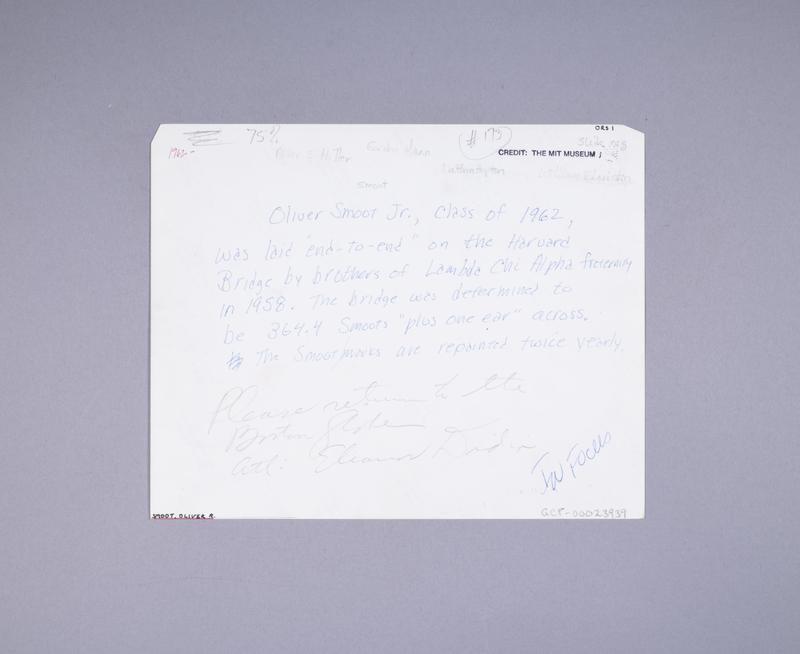 ORS 1
75%
# 173
1962-
CREDIT: THE MIT MUSEUM
Smoot
Oliver Smoot Jr., Class of 1962,
was laid "end-to-end" on the Harvard
Bridge by brothers of Lambda Chi Alpha fraternity
in 1958. The bridge was determined to
be 364.4 Smoots "plus one ear" across.
The Smootmarks are repainted twice yearly.
Please return to the
Boston Globe
att: Eleanor
IN FOCUS
SMOOT, OLIVER R.
GCP-00023939